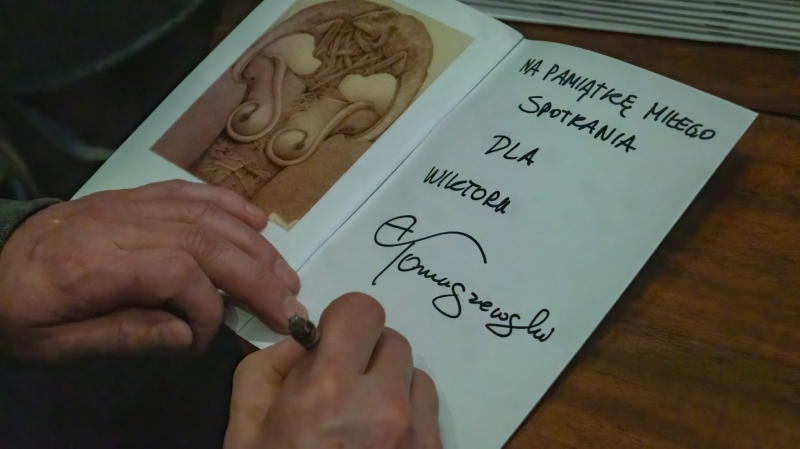 NA PAMIĄTKĘ MIŁEGO
SPOTKANIA
DLA
WIKTORA
A Tomaszewski